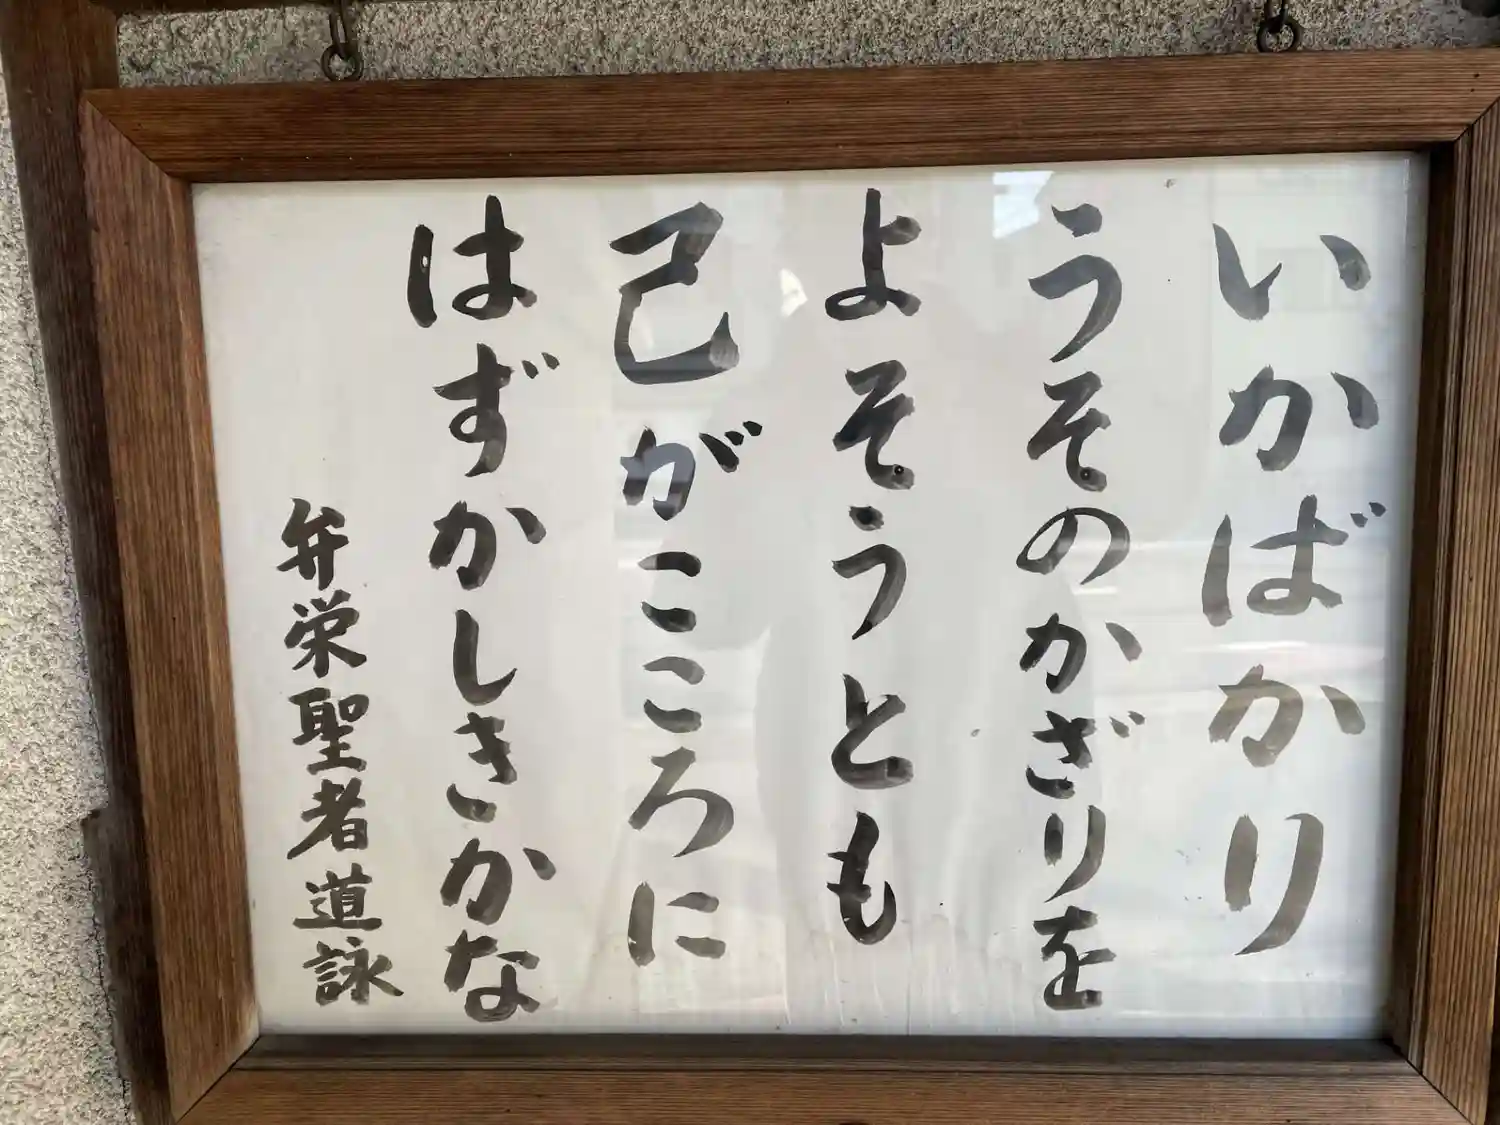 いかばかり
うそのかざりを
よそうとも
己がこころに
はずかしきかな
弁栄聖者道詠